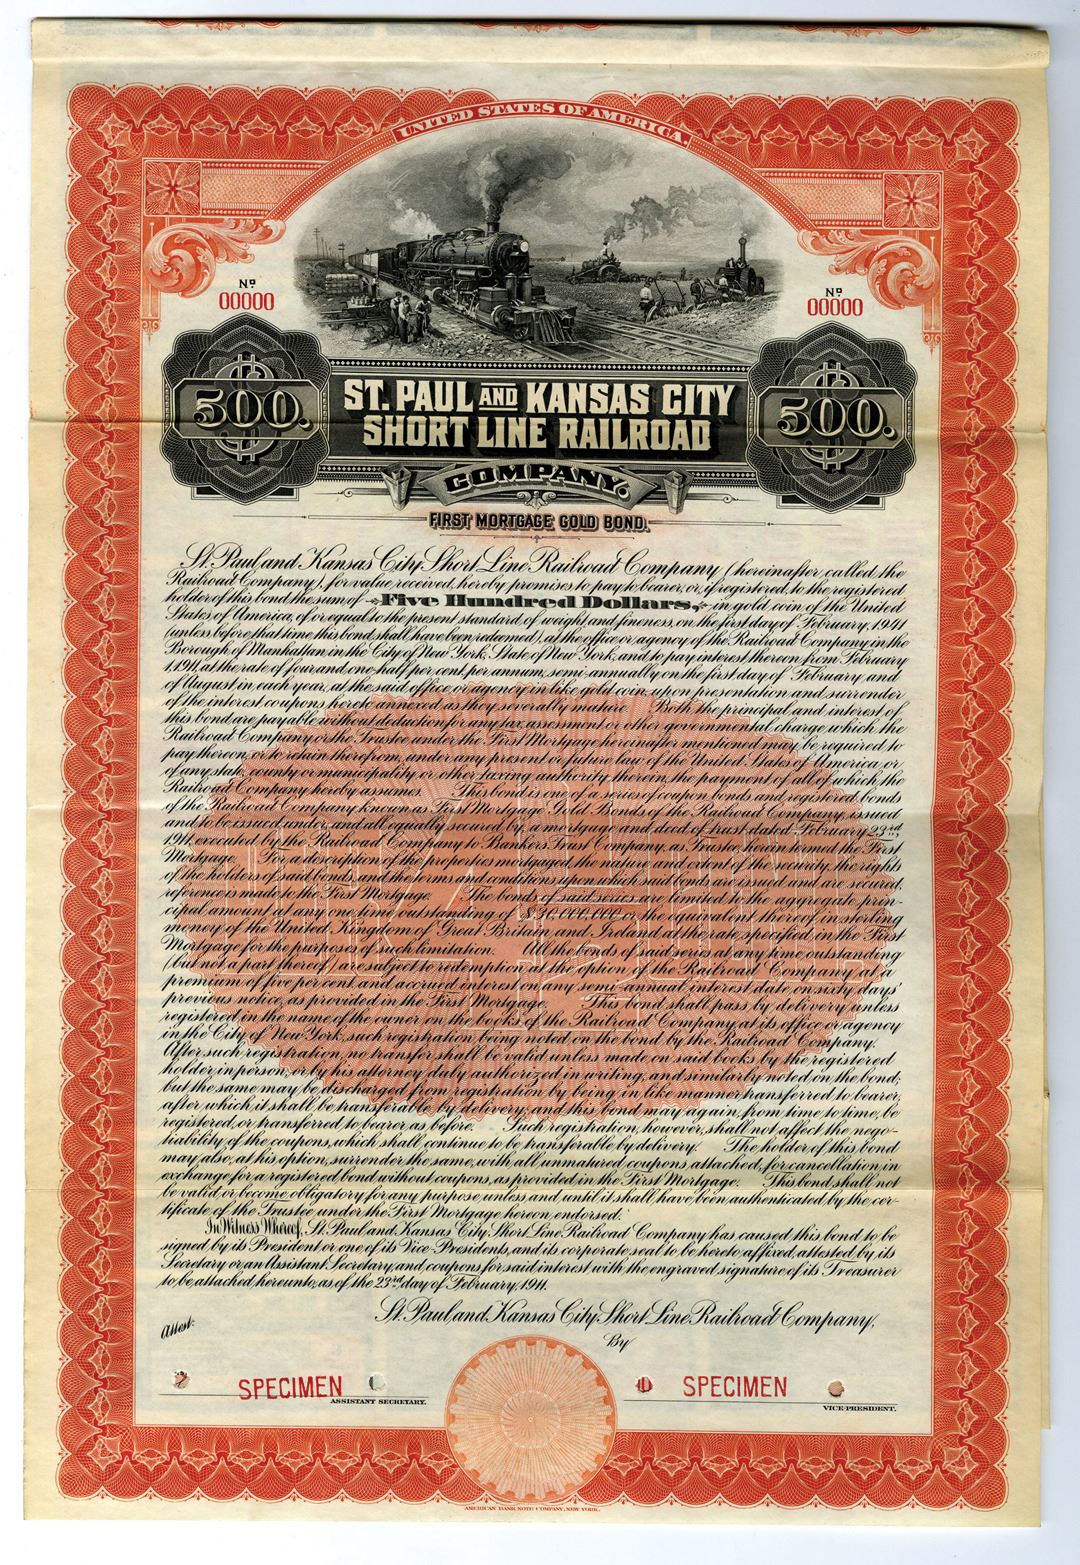 UNITED STATES OF AMERICA.
No 00000
No 00000
500.
500.
ST. PAUL AND KANSAS CITY
SHORT LINE RAILROAD
COMPANY.
FIRST MORTGAGE GOLD BOND.
St. Paul and Kansas City Short Line Railroad Company (hereinafter called the
Railroad Company), for value received, hereby promises to pay to bearer, or, if registered, to the registered
holder of this bond the sum of Five Hundred Dollars, in gold coin of the United
States of America, of or equal to the present standard of weight and fineness, on the first day of February, 1941
(unless before that time this bond shall have been redeemed), at the office or agency of the Railroad Company in the
Borough of Manhattan, in the City of New York, State of New York, and to pay interest thereon from February
1, 1911, at the rate of four and one-half per cent. per annum, semi-annually on the first day of February and
of August in each year, at the said office or agency in like gold coin, upon presentation and surrender
of the interest coupons hereto annexed as they severally mature. Both the principal and interest of
this bond are payable without deduction for any tax, assessment or other governmental charge which the
Railroad Company or the Trustee under the First Mortgage hereinafter mentioned may be required to
pay thereon, or to retain therefrom, under any present or future law of the United States of America or
of any state, county or municipality or other taxing authority therein, the payment of all of which the
Railroad Company hereby assumes. This bond is one of a series of coupon bonds and registered bonds
of the Railroad Company, known as First Mortgage Gold Bonds of the Railroad Company, issued
and to be issued under, and all equally secured by, a mortgage and deed of trust dated February 23rd,
1911, executed by the Railroad Company to Bankers Trust Company, as Trustee, herein termed the First
Mortgage. For a description of the properties mortgaged, the nature and extent of the security, the rights
of the holders of said bonds, and the terms and conditions upon which said bonds are issued and are secured,
reference is made to the First Mortgage. The bonds of said series are limited to the aggregate prin-
cipal amount at any one time outstanding of $30,000,000 or the equivalent thereof in sterling
money of the United Kingdom of Great Britain and Ireland at the rate specified in the First
Mortgage for the purposes of such limitation. All the bonds of said series at any time outstanding
(but not a part thereof) are subject to redemption at the option of the Railroad Company at a
premium of five per cent. and accrued interest on any semi-annual interest date on sixty days'
previous notice, as provided in the First Mortgage. This bond shall pass by delivery, unless
registered in the name of the owner on the books of the Railroad Company, at its office or agency
in the City of New York, such registration being noted on the bond by the Railroad Company.
After such registration, no transfer shall be valid unless made on said books by the registered
holder, in person, or by his attorney duly authorized in writing, and similarly noted on the bond;
but the same may be discharged from registration by being in like manner transferred to bearer,
after which it shall be transferable by delivery; and this bond may again, from time to time, be
registered, or transferred to bearer as before. Such registration, however, shall not affect the nego-
tiability of the coupons, which shall continue to be transferable by delivery. The holder of this bond
may also, at his option, surrender the same, with all unmatured coupons attached, for cancellation, in
exchange for a registered bond without coupons, as provided in the First Mortgage. This bond shall not
be valid or become obligatory for any purpose, unless, and until it shall have been authenticated by the cer-
tificate of the Trustee under the First Mortgage hereon endorsed.
In Witness Whereof, St. Paul and Kansas City Short Line Railroad Company has caused this bond to be
signed by its President or one of its Vice-Presidents, and its corporate seal to be hereto affixed, attested by its
Secretary or an Assistant Secretary, and coupons for said interest with the engraved signature of its Treasurer
to be attached hereunto, as of the 23rd day of February, 1911.
St. Paul and Kansas City Short Line Railroad Company,
Attest:
By
SPECIMEN
SPECIMEN
ASSISTANT SECRETARY.
VICE-PRESIDENT.
AMERICAN BANK NOTE COMPANY, NEW YORK.